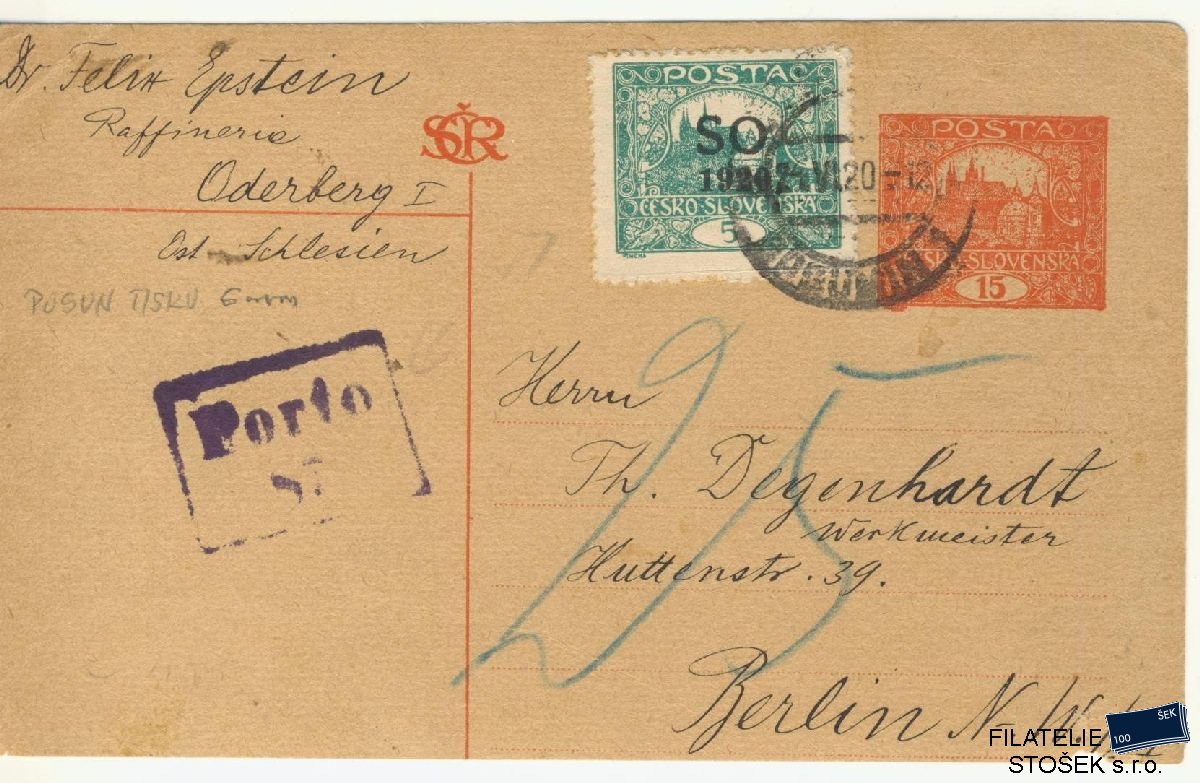 Dr. Felix Epstein
Raffineria
Oderberg I
Ost Schlesien
POSUN TISKU 6mm
ČSR
POSTA
SO
1920
ČESKO-SLOVENSKÁ
5
VI.20-12
POSTA
SLOVENSKÁ
15
Porto
25
Herrn
Th. Degenhardt
Werkmeister
Huttenstr. 39.
Berlin N.W.
FILATELIE
STOŠEK s.r.o.
100
ŠEK